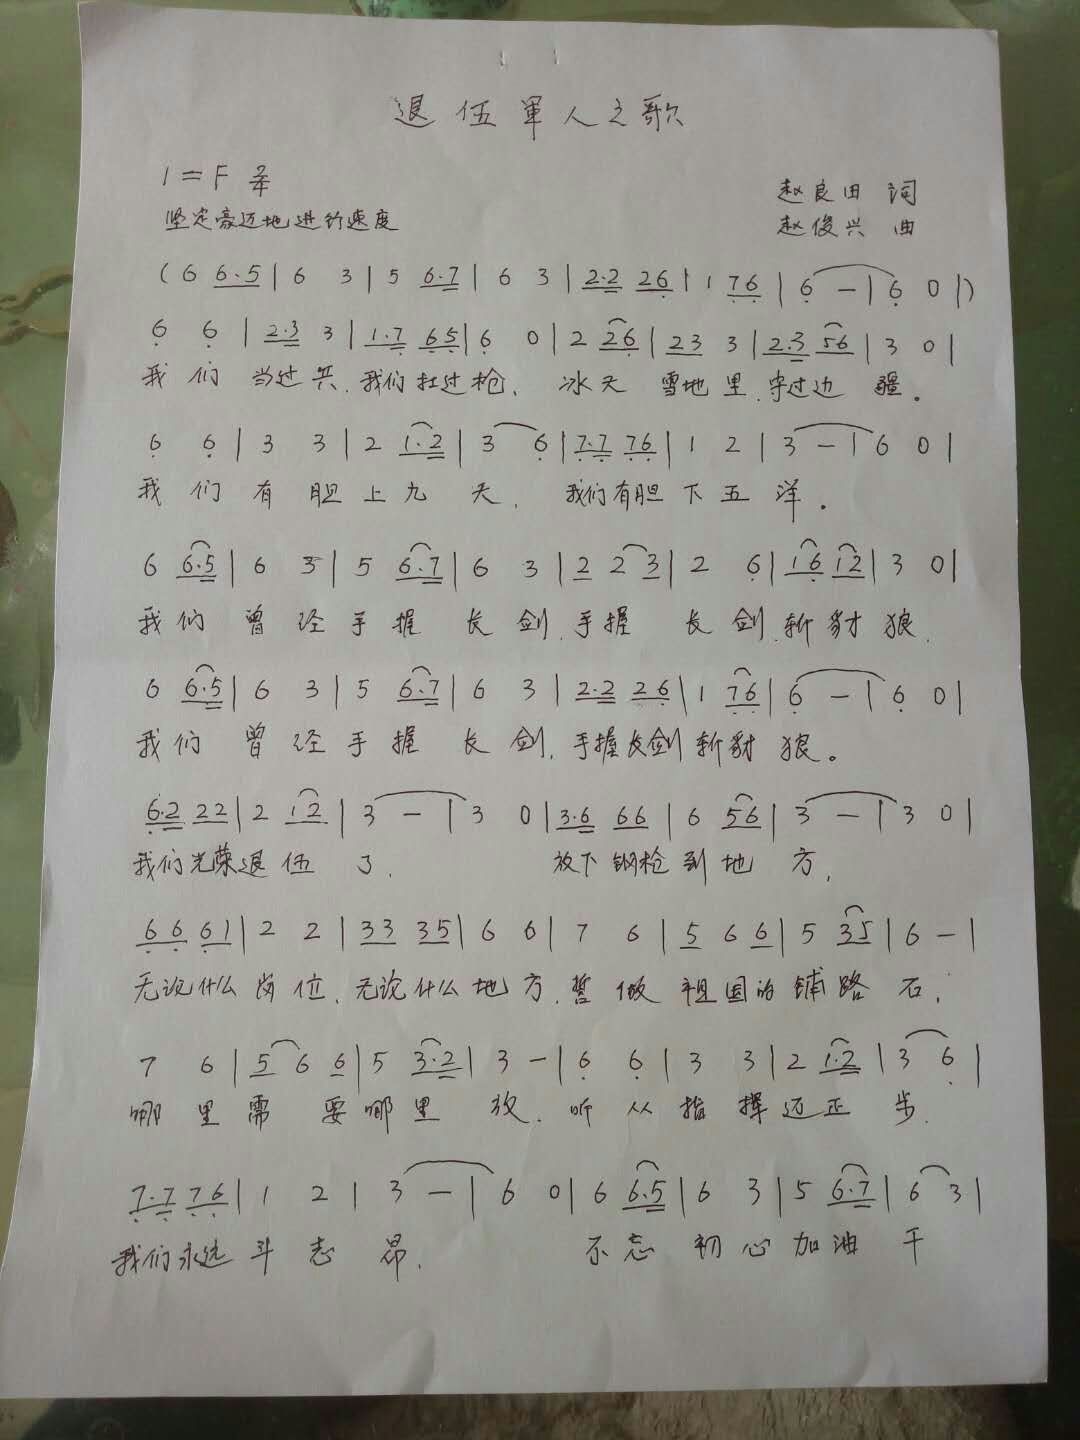 退伍軍人之歌
1=F 2/4
赵良田 词
坚定豪迈地 进行速度
赵俊兴 曲
(6 6.5|6 3|5 6.7|6 3|2.2 26|1 76|6 —|6 0|)
6 6|2.3 3|1.7 65|6 0|2 26|23 3|2.3 56|3 0|
我们当过兵,我们扛过枪,冰天雪地里,守过边疆。
6 6|3 3|2 1.2|3 6|7.7 76|1 2|3 —|6 0|
我们有胆上九天,我们有胆下五洋。
6 6.5|6 3|5 6.7|6 3|2 2 3|2 6|16 12|3 0|
我们曾经手握长剑,手握长剑,斩豺狼,
6 6.5|6 3|5 6.7|6 3|2.2 26|1 76|6 —|6 0|
我们曾经手握长剑,手握长剑斩豺狼。
6.2 22|2 12|3 —|3 0|3.6 66|6 56|3 —|3 0|
我们光荣退伍了,放下钢枪到地方,
66 61|2 2|33 35|6 6|7 6|5 6 6|5 35|6 —|
无论什么岗位,无论什么地方,誓做祖国的铺路石,
7 6|5 6 6|5 3.2|3 —|6 6|3 3|2 1.2|3 6|
哪里需要哪里放,听从指挥迈正步,
7.7 76|1 2|3 —|6 0|6 6.5|6 3|5 6.7|6 3|
我们永远斗志昂,不忘初心加油干